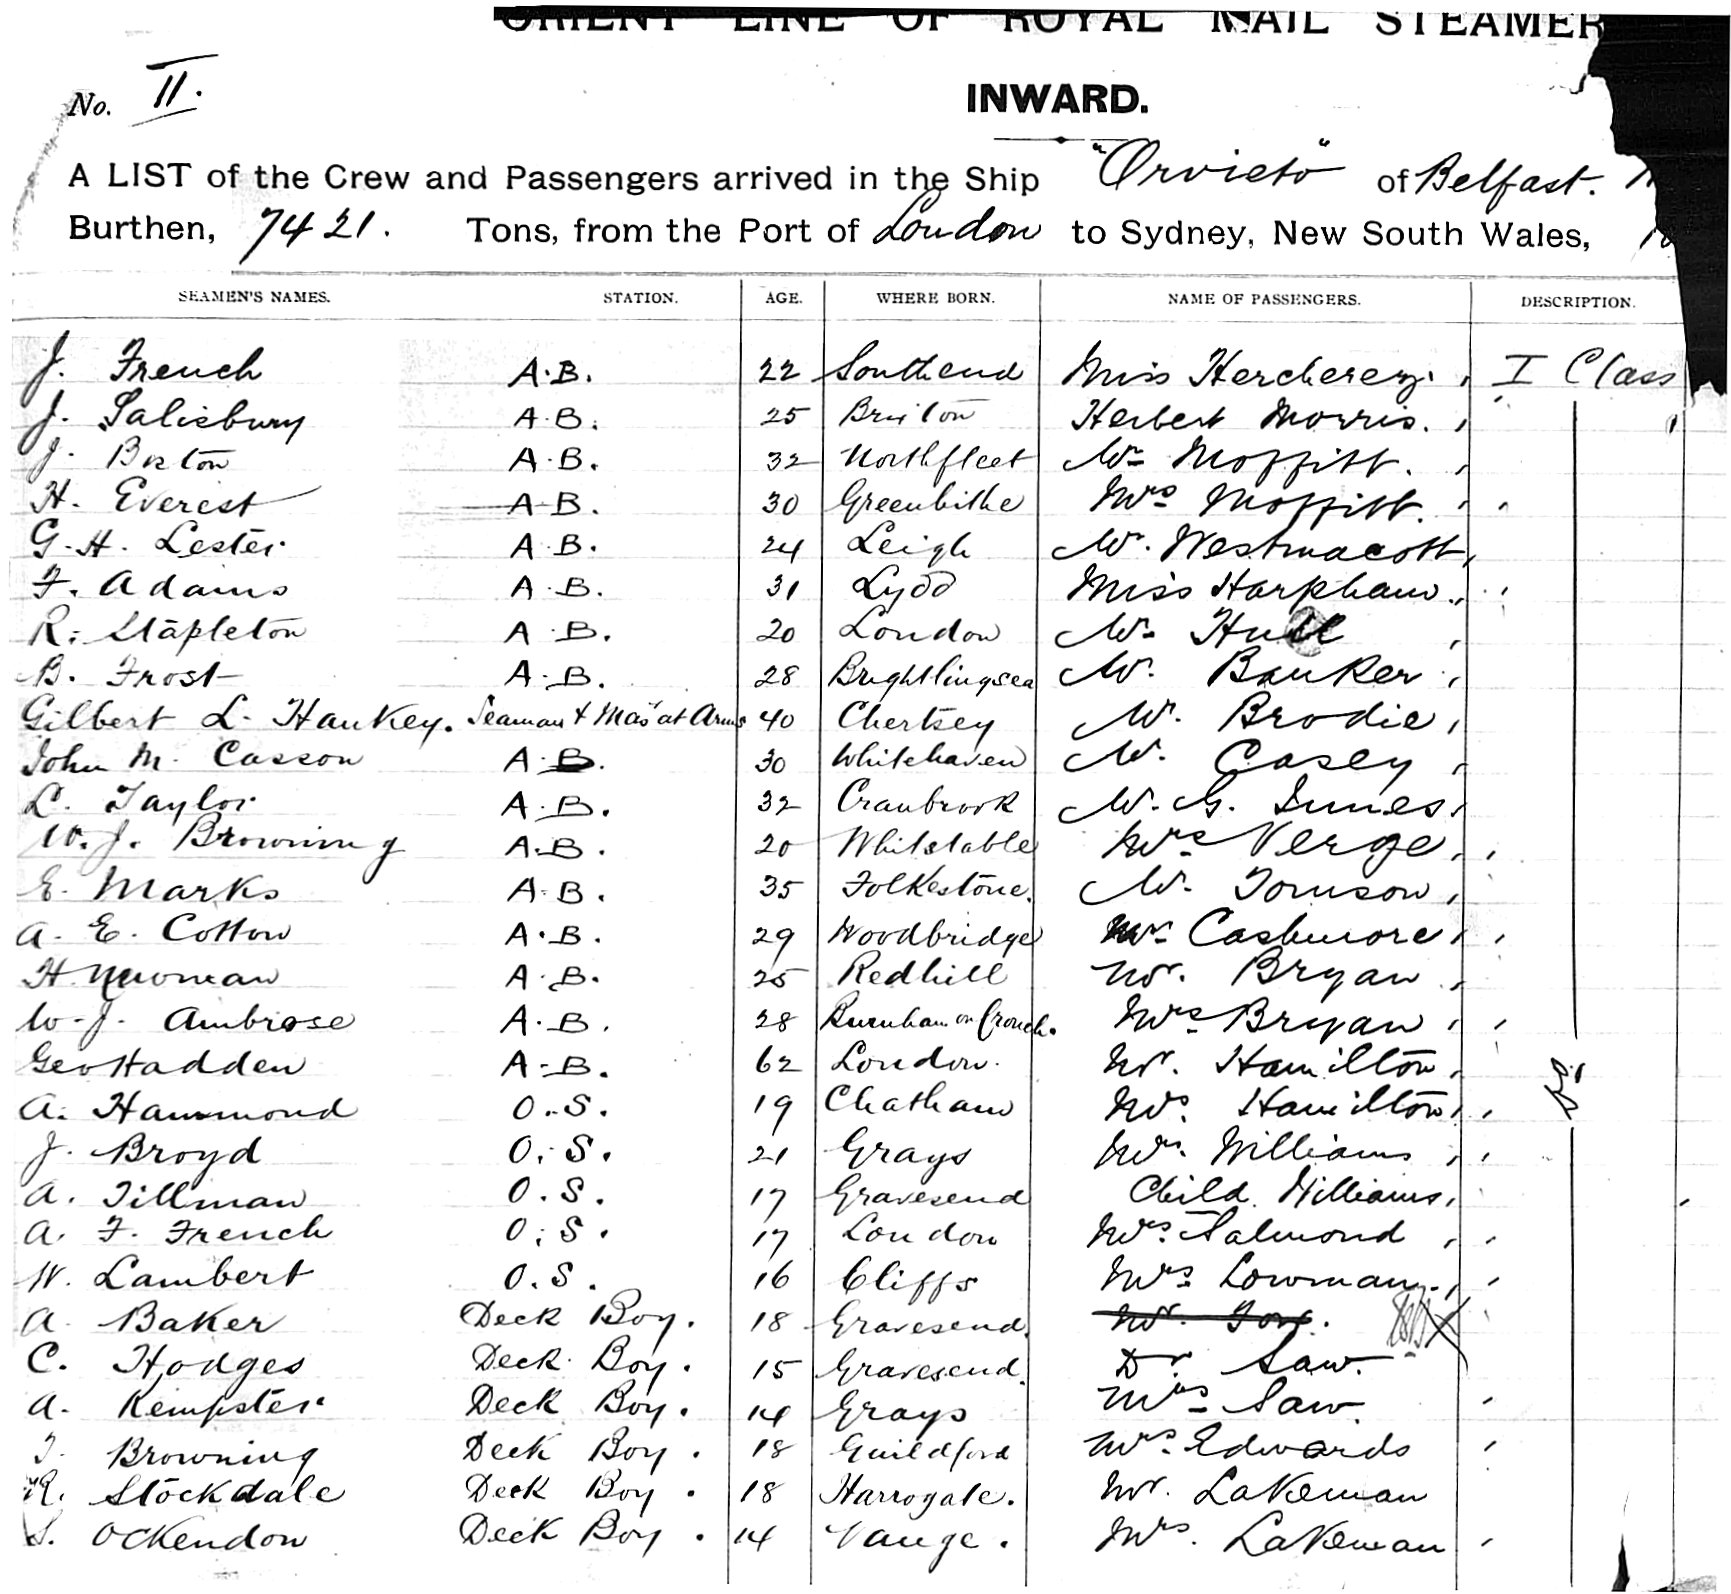 ORIENT LINE OF ROYAL MAIL STEAMER
No. II.
INWARD.
A LIST of the Crew and Passengers arrived in the Ship "Orvieto" of Belfast.
Burthen, 7421. Tons, from the Port of London to Sydney, New South Wales,
SEAMEN'S NAMES. STATION. AGE. WHERE BORN. NAME OF PASSENGERS. DESCRIPTION.
J. French A.B. 22 Southend Miss I Class
J. Salisbury A.B. 25 Brixton Herbert Morris.
J. A.B. 32 Northfleet Mr Moffitt.
H. Everest A.B. 30 Greenhithe Mrs Moffitt.
G. H. Lester A.B. 24 Leigh Mr. Westmacott
F. Adams A.B. 31 Lydd Miss Harpham
R. Stapleton A.B. 20 London Mr. Hull
B. Frost A.B. 28 Brightlingsea Mr. Banker
Gilbert L. Hankey. Seaman & Mas at Arms 40 Chertsey Mr. Brodie
John M. Casson A.B. 30 Whitehaven Mr. Casey
L. Taylor A.B. 32 Cranbrook Mr. G. Innes
W. J. Browning A.B. 20 Whitstable Mrs Verge
E. Marks A.B. 35 Folkestone. Mr. Tomson
A. E. Cotton A.B. 29 Woodbridge Mrs Cashmore
H. Newman A.B. 25 Redhill Mr. Bryan
W. J. Ambrose A.B. 28 Burnham on Crouch. Mrs Bryan
Geo Hadden A.B. 62 London. Mr. Hamilton
A. Hammond O.S. 19 Chatham Mrs. Hamilton
J. Broyd O.S. 21 Grays Mrs. Williams do
A. Tillman O.S. 17 Gravesend Child Williams
A. F. French O.S. 17 London Mrs. Salmond
W. Lambert O.S. 16 Cliffs Mrs Lowman
A. Baker Deck Boy. 18 Gravesend. Mr.
C. Hodges Deck Boy. 15 Gravesend. Dr Saw.
A. Kempster Deck Boy. 14 Grays Mrs Saw.
T. Browning Deck Boy. 18 Guildford Mrs. Edwards
R. Stockdale Deck Boy. 18 Harrogate. Mr. Lakeman
S. Ockendon Deck Boy. 14 Vange. Mrs. Lakeman